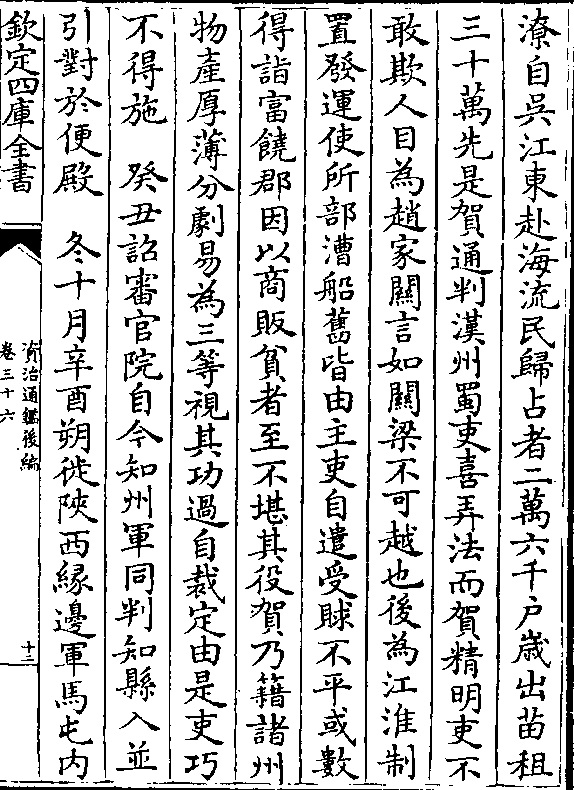 潦自吳江東赴海流民歸占者二萬六千户歲出苗租
三十萬先是賀通判漢州蜀吏喜弄法而賀精明吏不
敢欺人目為趙家關言如關梁不可越也後為江淮制
置發運使所部漕船舊皆由主吏自遣受賕不平或數
得詣富饒郡因以商販貧者至不堪其役賀乃籍諸州
物產厚薄分劇易為三等視其功過自裁定由是吏巧
不得施　癸丑詔審官院自今知州軍同判知縣入並
引對於便殿　冬十月辛酉朔徙陜西緣邊軍馬屯内
欽定四庫全書
資治通鑑後編
卷三十六
十三